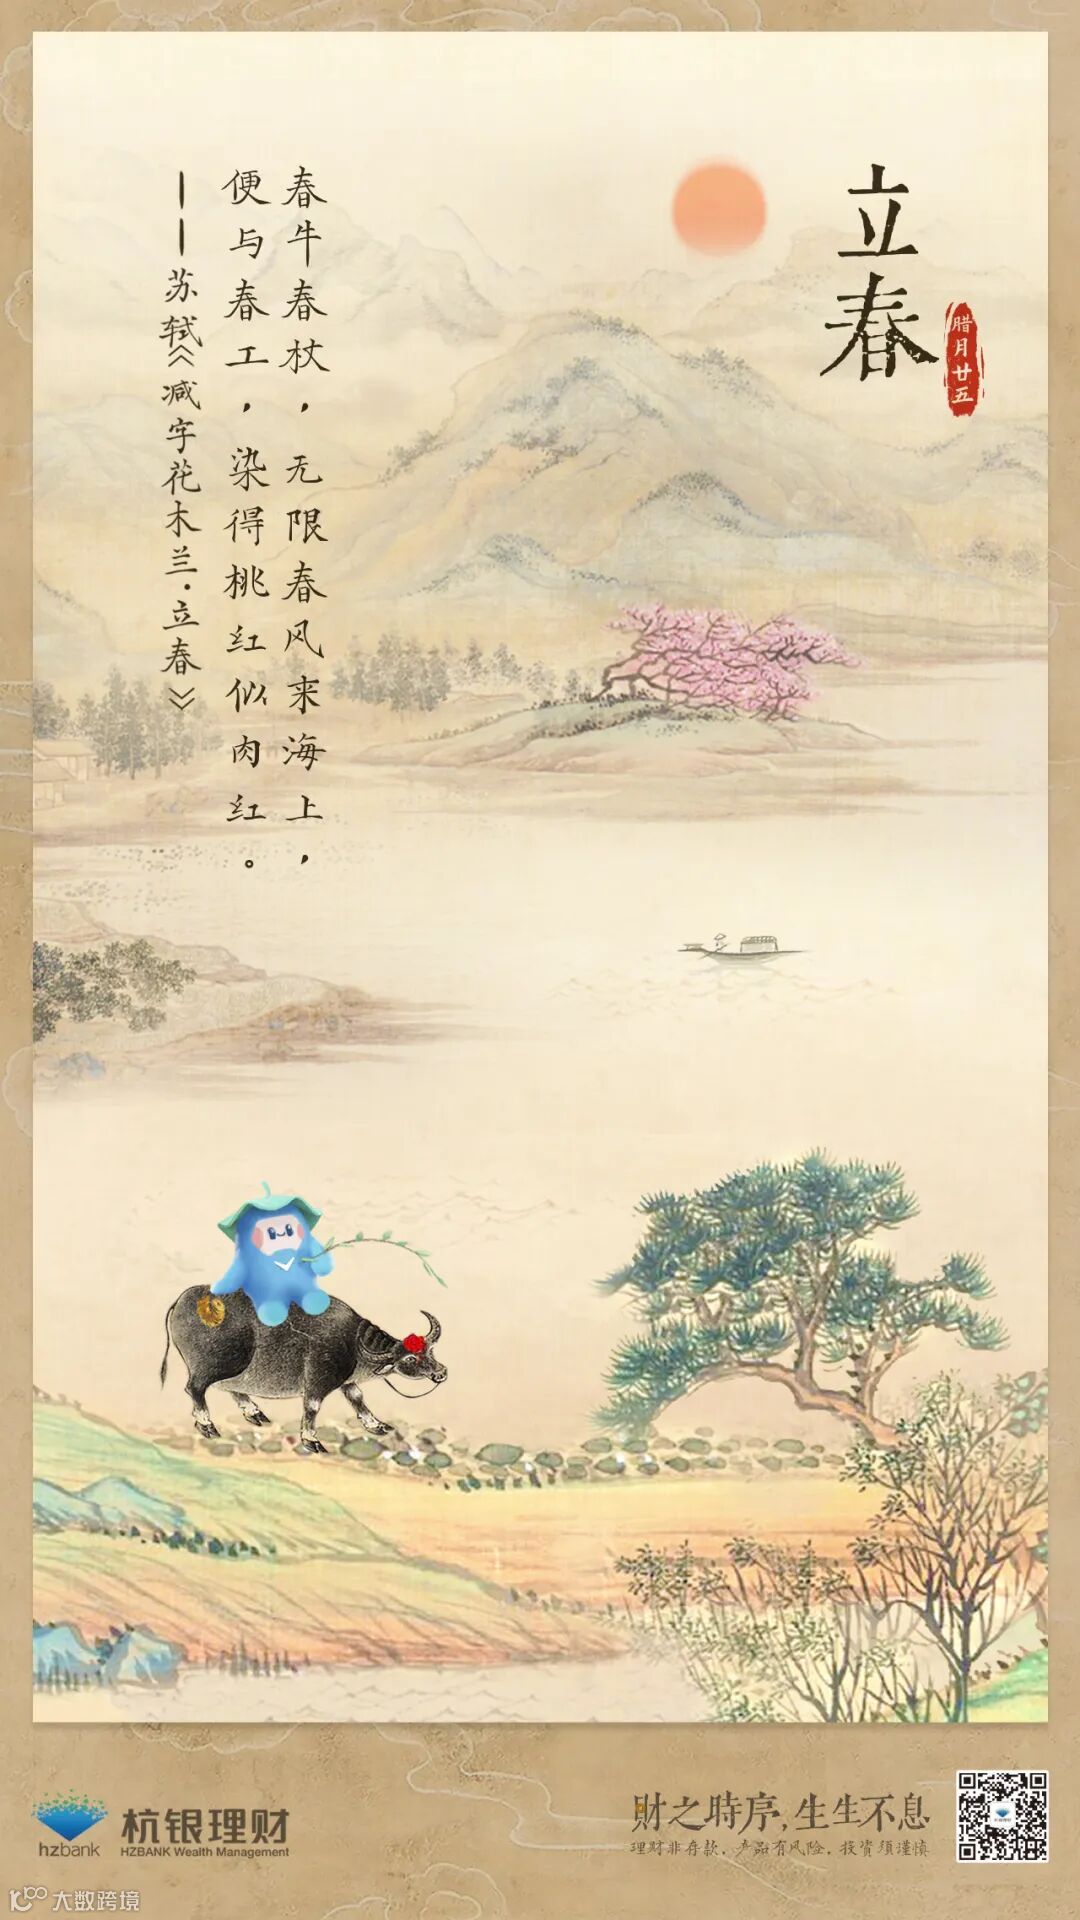 立春
腊月廿五
春牛春杖，无限春风来海上，
便与春工，染得桃红似肉红。
——苏轼《减字花木兰·立春》
hzbank
杭银理财
HZBANK Wealth Management
財之時序，生生不息
理财非存款，产品有风险，投资须谨慎
大数跨境